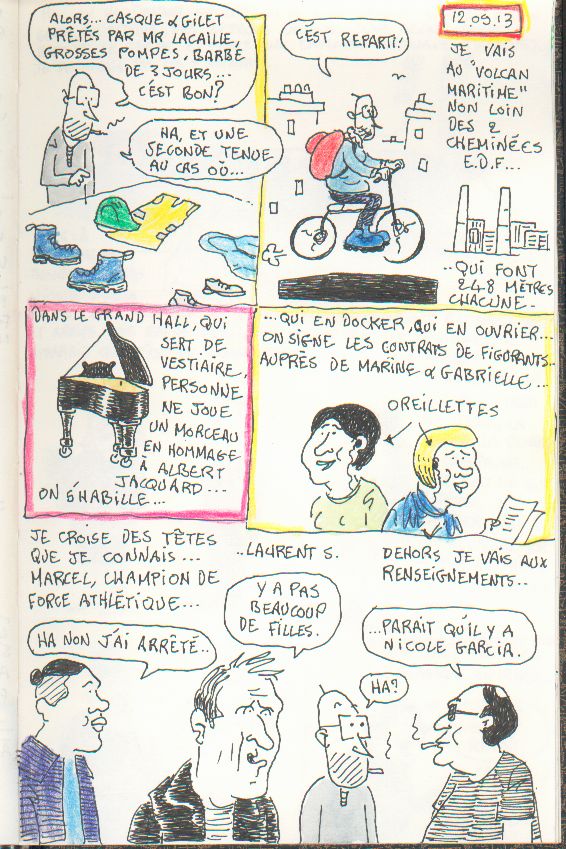 ALORS... CASQUE & GILET
PRÊTÉS PAR MR LACAILLE,
GROSSES POMPES, BARBE
DE 3 JOURS...
C'EST BON?
HA, ET UNE
SECONDE TENUE
AU CAS OÙ...
C'EST REPARTI!
12.09.13
JE VAIS
AU "VOLCAN
MARITIME"
NON LOIN
DES 2
CHEMINÉES
E.D.F...
..QUI FONT
248 MÈTRES
CHACUNE.
DANS LE GRAND HALL, QUI
SERT DE
VESTIAIRE,
PERSONNE
NE JOUE
UN MORCEAU
EN HOMMAGE
À ALBERT
JACQUARD...
ON S'HABILLE...
...QUI EN DOCKER, QUI EN OUVRIER...
ON SIGNE LES CONTRATS DE FIGURANTS..
AUPRÈS DE MARINE & GABRIELLE...
OREILLETTES
JE CROISE DES TÊTES
QUE JE CONNAIS...
MARCEL, CHAMPION DE
FORCE ATHLÉTIQUE...
HA NON J'AI ARRÊTÉ..
..LAURENT S.
Y A PAS
BEAUCOUP
DE FILLES.
DEHORS JE VAIS AUX
RENSEIGNEMENTS..
HA?
...PARAIT QU'IL Y A
NICOLE GARCIA.